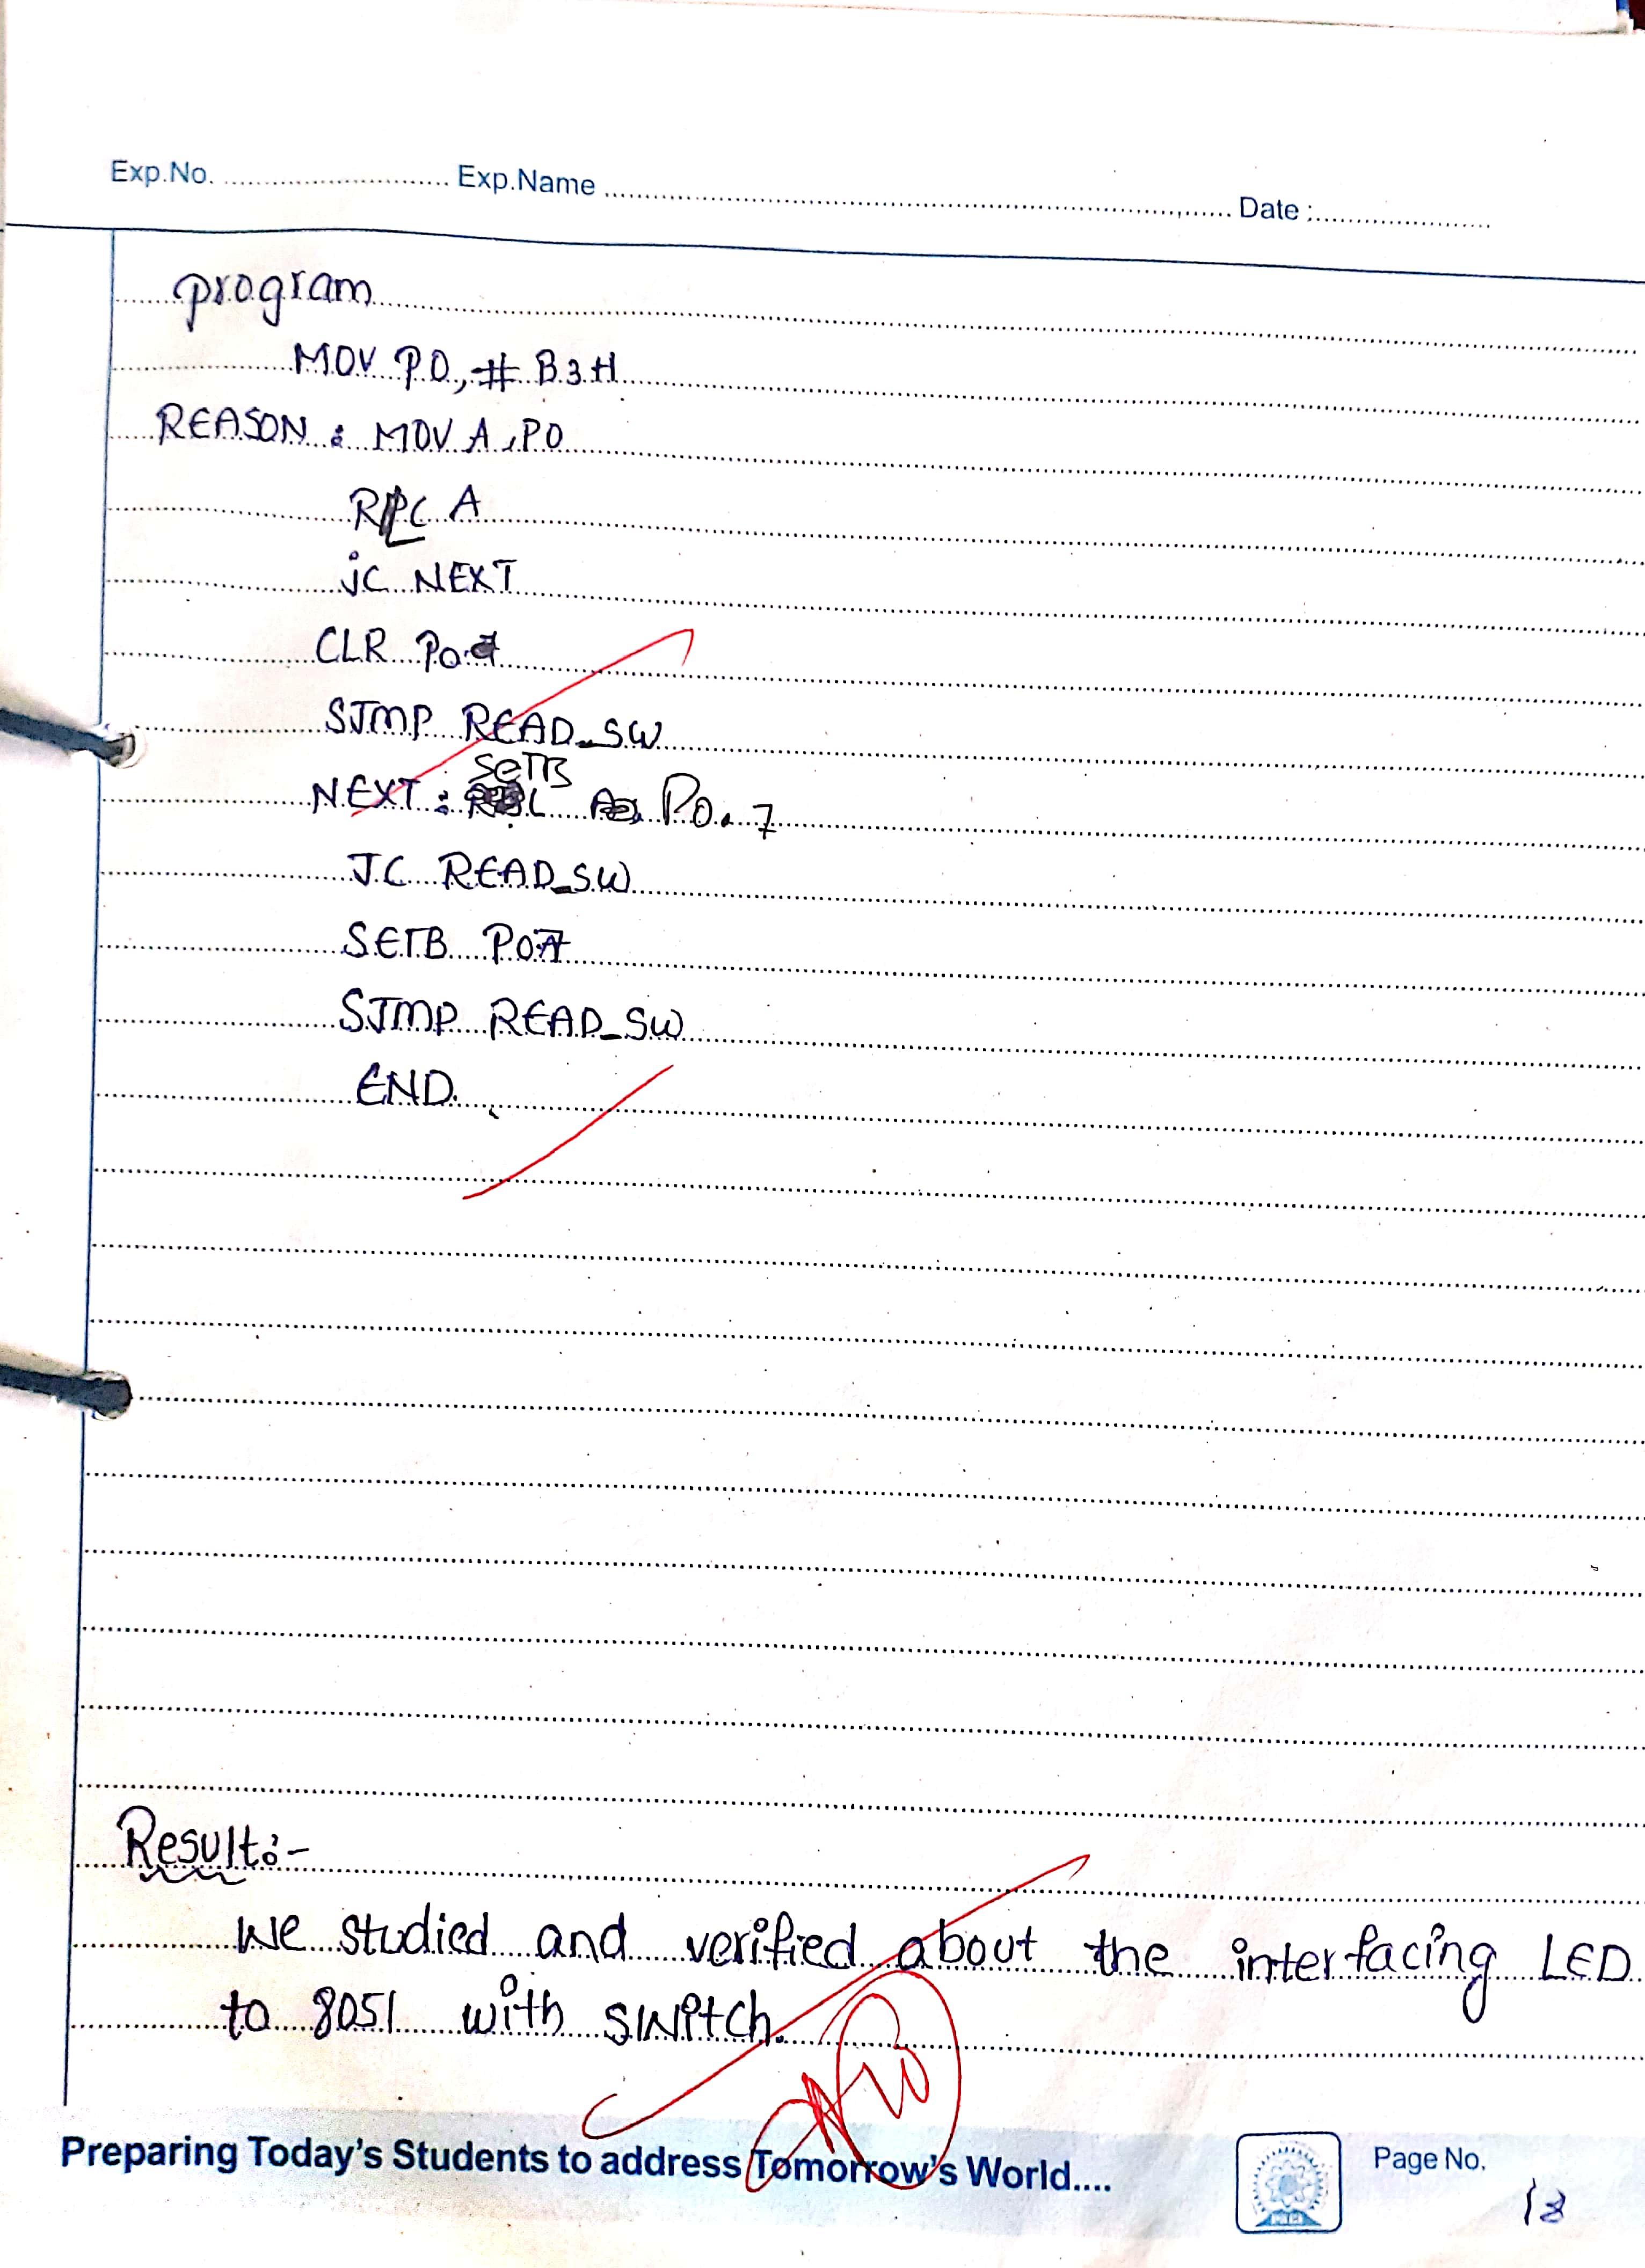 Exp.No. Exp.Name Date :
program
MOV P0, # B3H
REASON : MOV A, P0
RLC A
jC NEXT
CLR P0
SJMP READ_SW
NEXT : SETB P0.7
JC READ_SW
SETB P07
SJMP READ_SW
END.
Result:-
We studied and verified about the interfacing LED
to 8051 with switch.
Preparing Today's Students to address Tomorrow's World....
Page No.
18